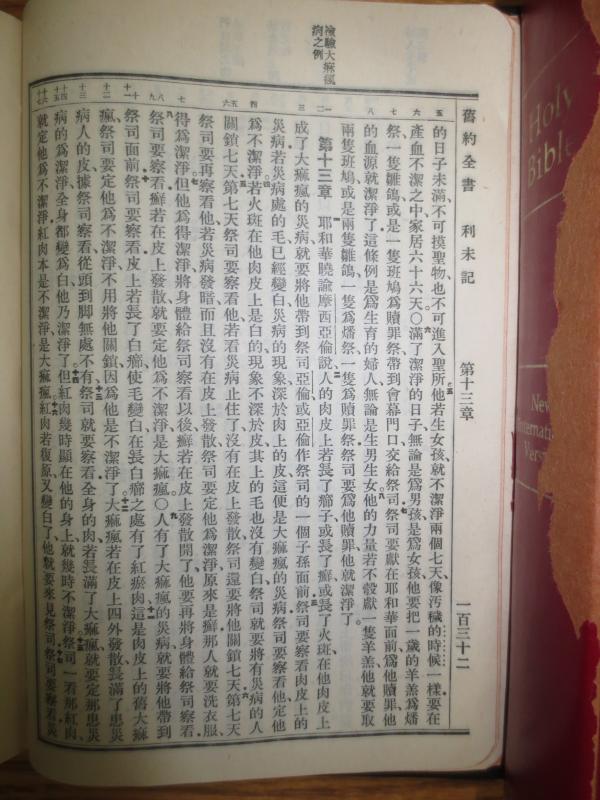 舊約全書 利未記 第十三章 一百三十二
的日子未滿、不可摸聖物、也不可進入聖所。他若生女孩、就不潔淨兩個七天、像汚穢的時候一樣、要在
產血不潔之中、家居六十六天。○滿了潔淨的日子、無論是爲男孩、是爲女孩、他要把一歲的羊羔爲燔
祭、一隻雛鴿、或是一隻斑鳩爲贖罪祭、帶到會幕門口交給祭司。祭司要獻在耶和華面前、爲他贖罪、他
的血源就潔淨了。這條例是爲生育的婦人、無論是生男生女。他的力量若不彀獻一隻羊羔、他就要取
兩隻斑鳩、或是兩隻雛鴿、一隻爲燔祭、一隻爲贖罪祭、祭司要爲他贖罪、他就潔淨了。
第十三章 耶和華曉諭摩西亞倫說、人的肉皮上若長了癤子、或長了癬、或長了火斑、在他肉皮上
成了大痲瘋的災病、就要將他帶到祭司亞倫、或亞倫作祭司的一個子孫面前。祭司要察看肉皮上的
災病、若災病處的毛已經變白、災病的現象深於肉上的皮、這便是大痲瘋的災病、祭司要察看他、定他
爲不潔淨。若火斑在他肉皮上是白的、現象不深於皮、其上的毛也沒有變白、祭司就要將有災病的人
關鎖七天。第七天祭司要察看他、若看災病止住了、沒有在皮上發散、祭司還要將他關鎖七天。第七天
祭司要再察看他、若災病發暗、而且沒有在皮上發散、祭司要定他爲潔淨、原來是癬、那人就要洗衣服、
得爲潔淨。但他爲得潔淨將身體給祭司察看以後、癬若在皮上發散開了、他要再將身體給祭司察看。
祭司要察看、癬若在皮上發散、就要定他爲不潔淨、是大痲瘋。○人有了大痲瘋的災病、就要將他帶到
祭司面前。祭司要察看、皮上若長了白癤、使毛變白、在長白癤之處有了紅瘀肉、這是肉皮上的舊大痲
瘋、祭司要定他爲不潔淨、不用將他關鎖、因爲他是不潔淨了。大痲瘋若在皮上四外發散、長滿了患災
病人的皮、據祭司察看、從頭到脚無處不有、祭司就要察看全身的肉、若長滿了大痲瘋、就要定那患災
病的爲潔淨、全身都變爲白、他乃潔淨了。但紅肉幾時顯在他的身上、就幾時不潔淨。祭司一看那紅肉
就定他爲不潔淨、紅肉本是不潔淨、是大痲瘋。紅肉若復原、又變白了、他就要來見祭司。祭司要察看、災
檢驗大痲瘋
病之例
Holy
Bible
New
International
Version